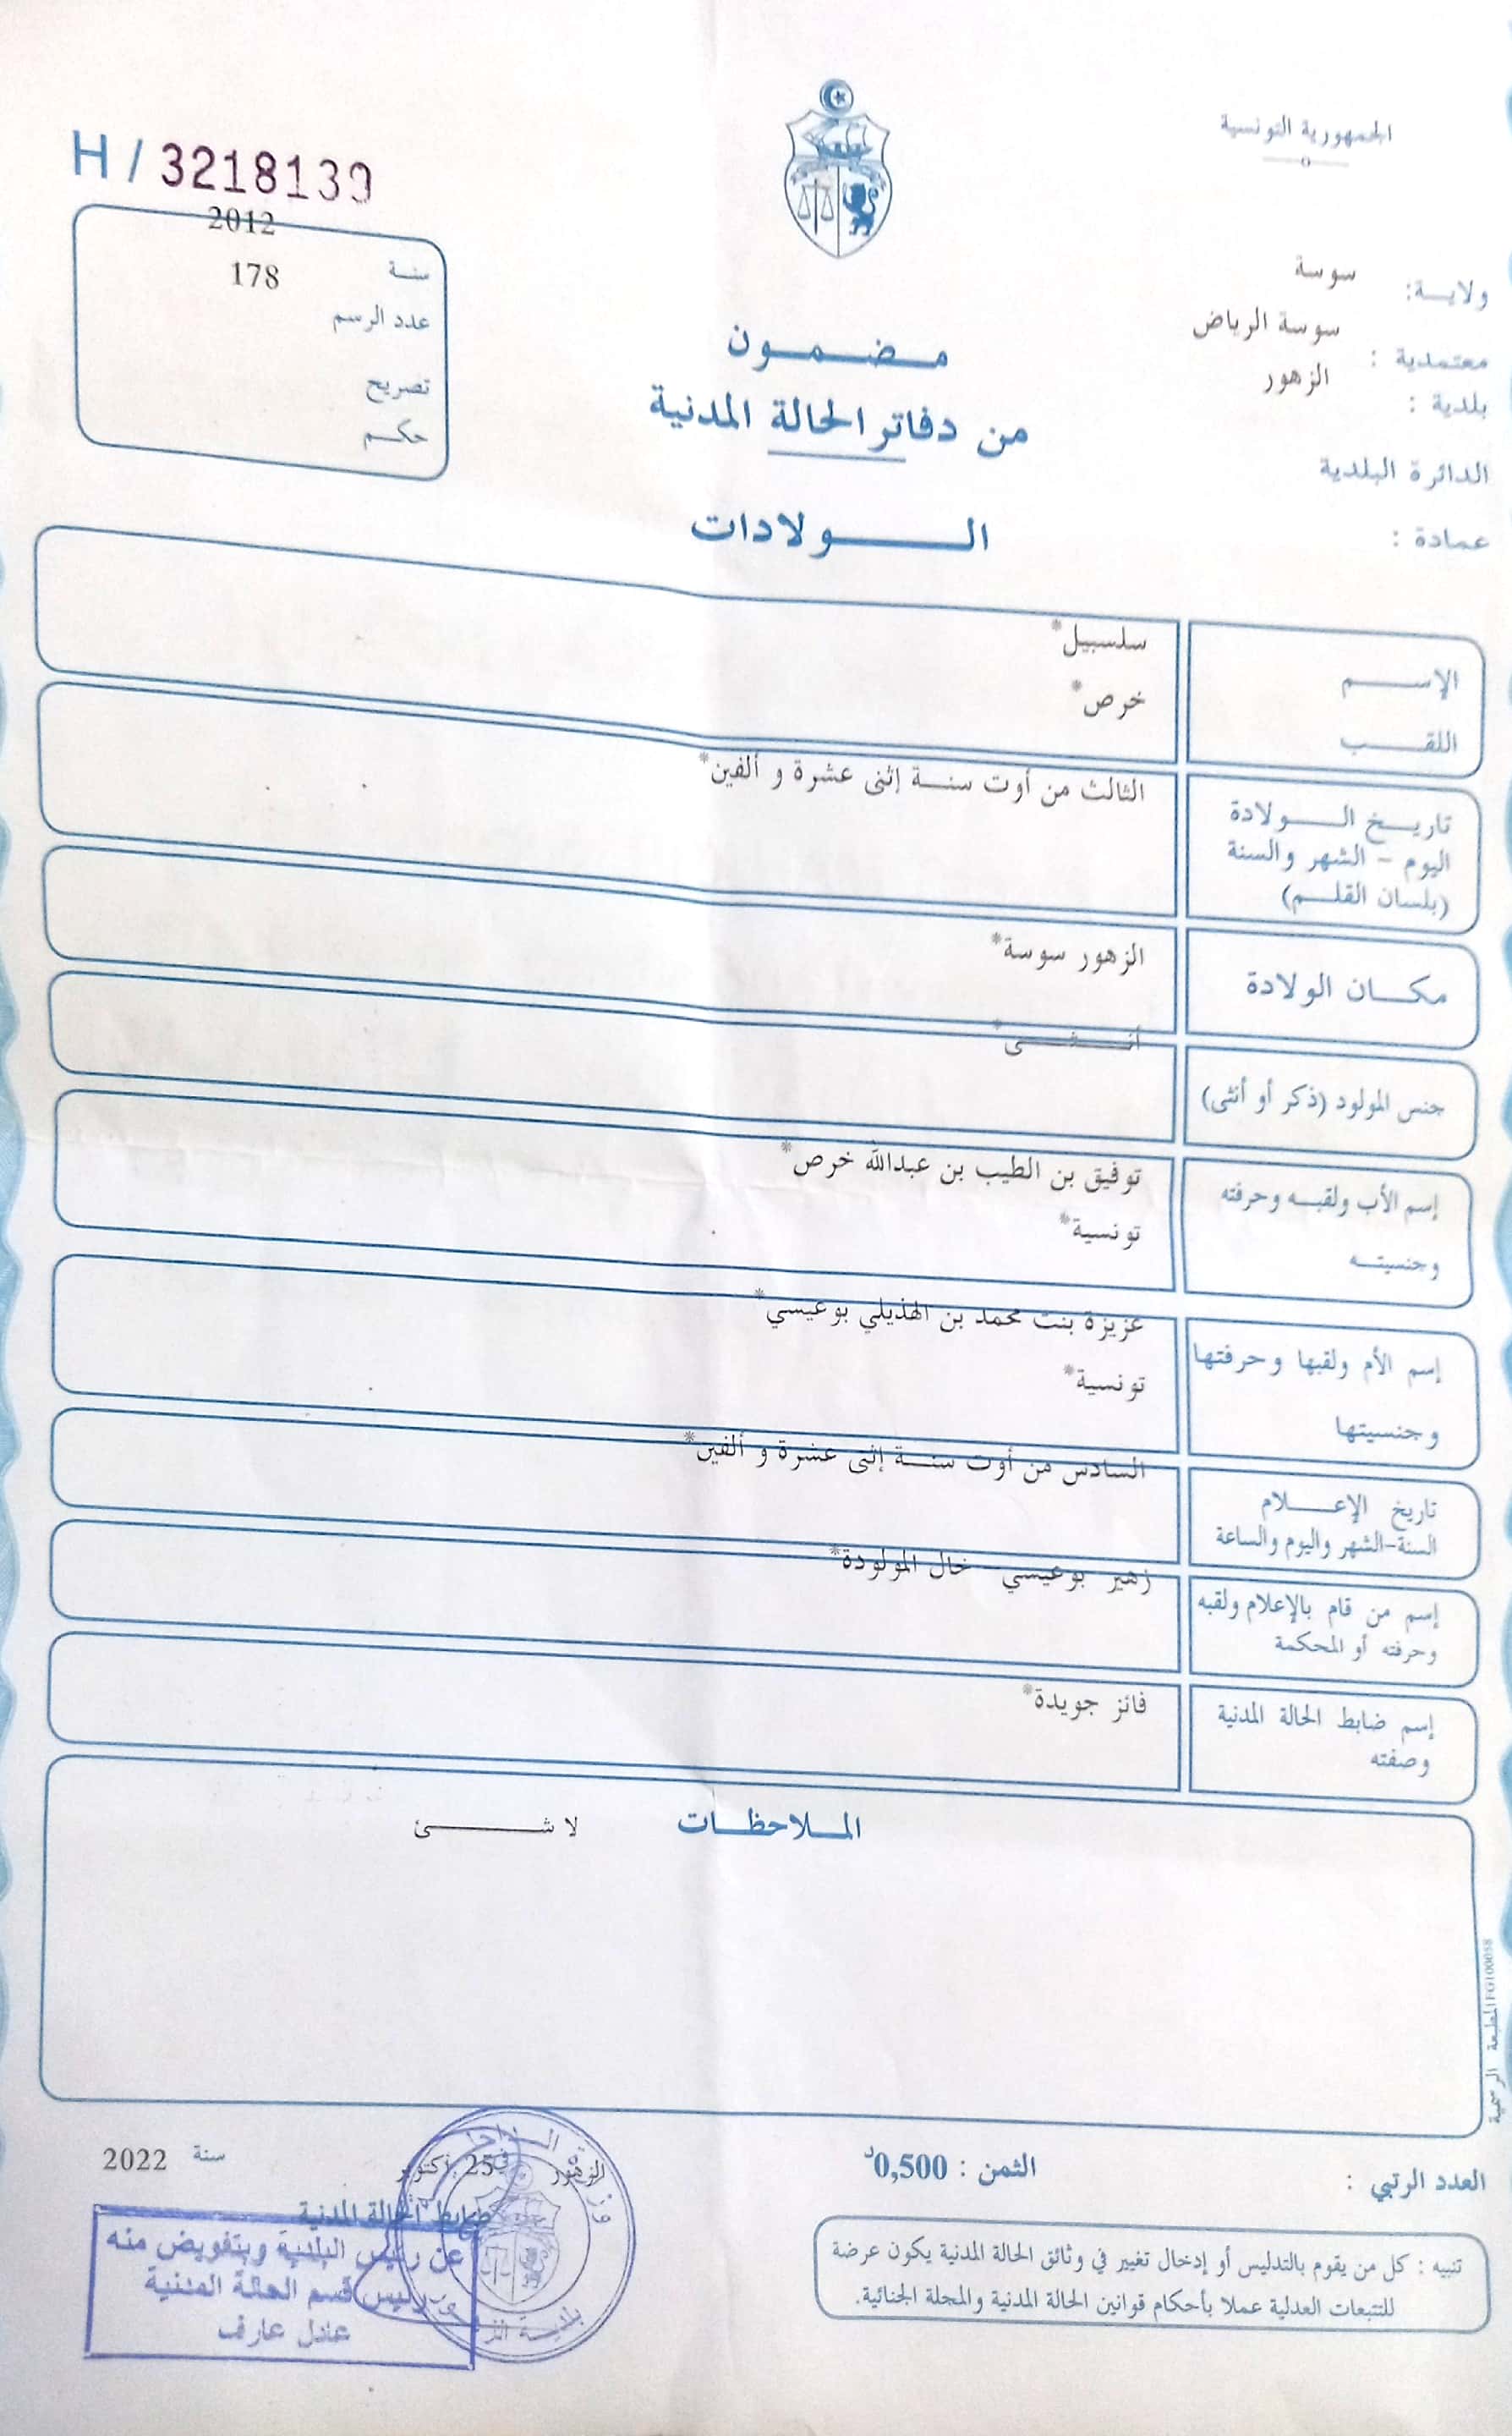 الجمهورية التونسية
H / 3218139
ولاية: سوسة
معتمدية : سوسة الرياض
بلدية : الزهور
الدائرة البلدية
عمادة :
2012
سنة
178
عدد الرسم
تصريح
حكم
مضمون
من دفاتر الحالة المدنية
الولادات
الإسم
سلسبيل*
اللقب
خرص*
تاريخ الولادة
اليوم - الشهر والسنة
(بلسان القلم)
الثالث من أوت سنة إثنى عشرة و ألفين*
مكان الولادة
الزهور سوسة*
جنس المولود (ذكر أو أنثى)
أنثى*
إسم الأب ولقبه وحرفته
وجنسيته
توفيق بن الطيب بن عبدالله خرص*
تونسية*
إسم الأم ولقبها وحرفتها
وجنسيتها
عزيزة بنت محمد بن الهذيلي بوعيسي*
تونسية*
تاريخ الإعلام
السنة-الشهر واليوم والساعة
السادس من أوت سنة إثنى عشرة و ألفين*
إسم من قام بالإعلام ولقبه
وحرفته أو المحكمة
زهير بوعيسي خال المولودة*
إسم ضابط الحالة المدنية
وصفته
فائز جويدة*
الملاحظات
لا شئ
المطبعة الرسمية
العدد الرتبي :
الثمن : 0,500د
الزهور في 25 أكتوبر سنة 2022
ضابط الحالة المدنية
عن رئيس البلدية وبتفويض منه
رئيس قسم الحالة المدنية
عادل عارف
تنبيه : كل من يقوم بالتدليس أو إدخال تغيير في وثائق الحالة المدنية يكون عرضة
للتتبعات العدلية عملا بأحكام قوانين الحالة المدنية والمجلة الجنائية.